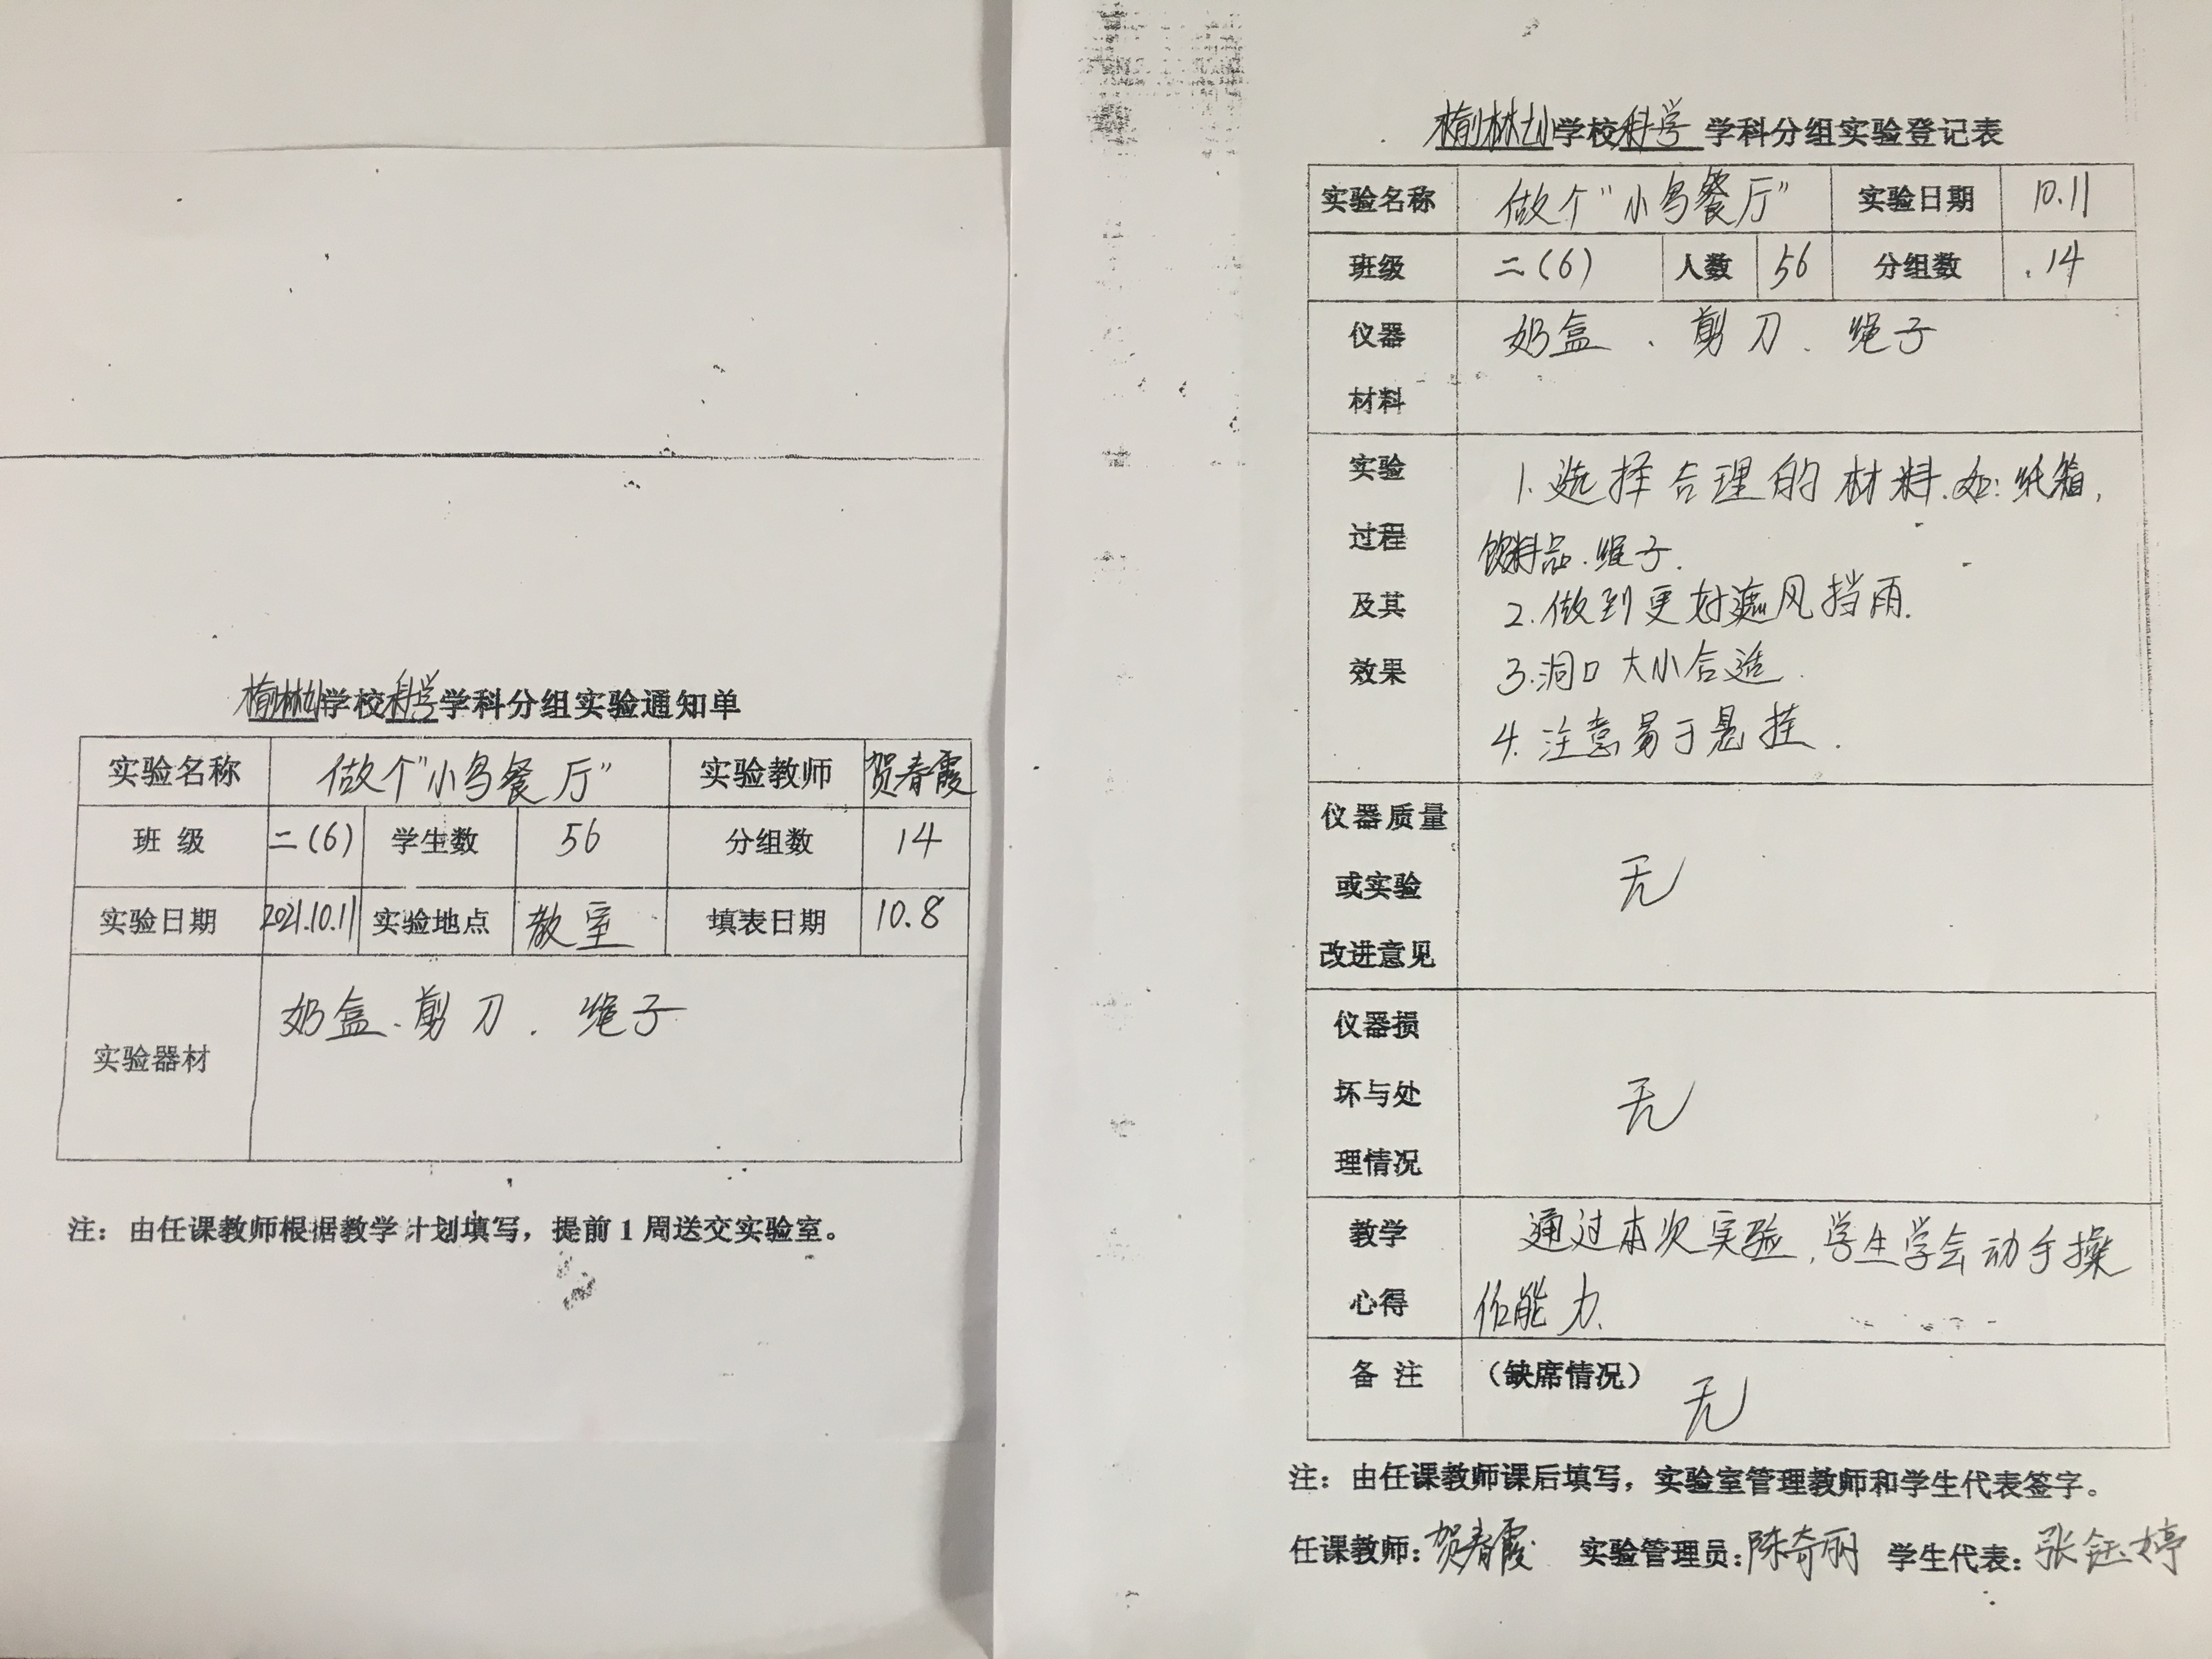 榆林七小学校科学学科分组实验通知单
实验名称 做个"小鸟餐厅" 实验教师 贺春霞
班 级 二(6) 学生数 56 分组数 14
实验日期 2021.10.11 实验地点 教室 填表日期 10.8
实验器材 奶盒、剪刀、绳子
注：由任课教师根据教学计划填写，提前1周送交实验室。
榆林七小学校科学 学科分组实验登记表
实验名称 做个"小鸟餐厅" 实验日期 10.11
班级 二(6) 人数 56 分组数 14
仪器 奶盒、剪刀、绳子
材料
实验 1.选择合理的材料.如:纸箱,
过程 饮料品.绳子.
及其 2.做到更好遮风挡雨.
效果 3.洞口大小合适.
4.注意易于悬挂.
仪器质量
或实验 无
改进意见
仪器损
坏与处 无
理情况
教学 通过本次实验,学生学会动手操
心得 作能力.
备 注 （缺席情况） 无
注：由任课教师课后填写，实验室管理教师和学生代表签字。
任课教师：贺春霞 实验管理员：陈奇丽 学生代表：张钰婷